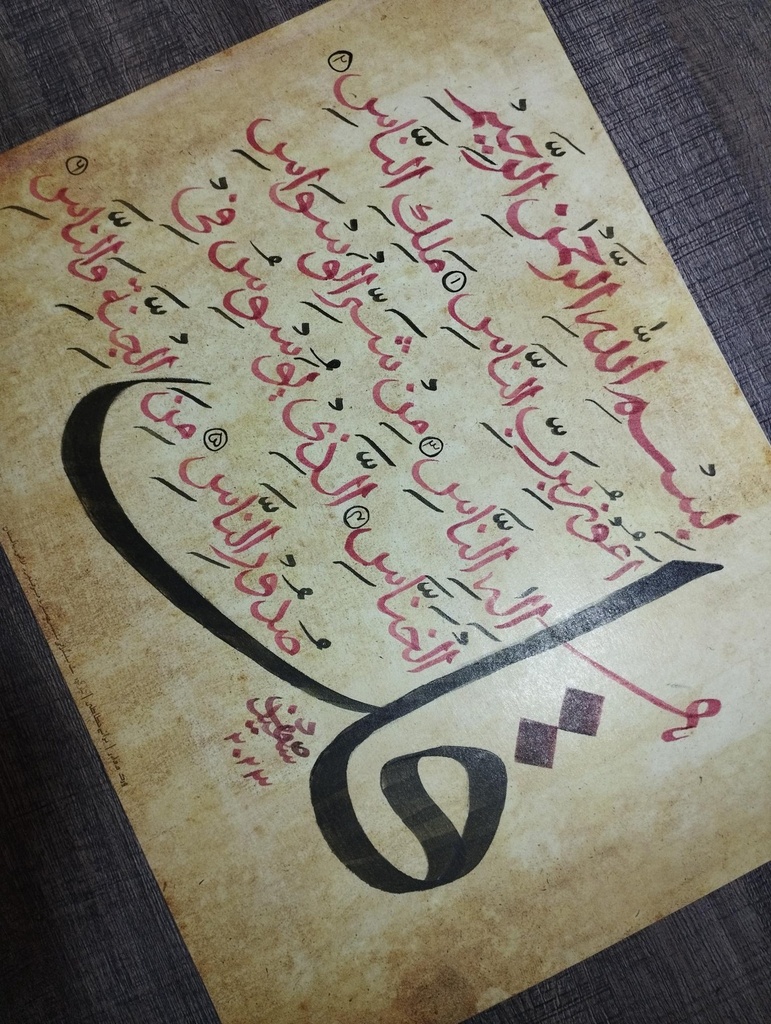 بِسْمِ اللّٰهِ الرَّحْمٰنِ الرَّحِيْمِ
قل
اَعُوْذُ بِرَبِّ النَّاسِ ۱ مَلِكِ النَّاسِ ۲
اِلٰهِ النَّاسِ ۳ مِنْ شَرِّ الْوَسْوَاسِ
الْخَنَّاسِ ۴ الَّذِيْ يُوَسْوِسُ فِيْ
صُدُوْرِ النَّاسِ ۵ مِنَ الْجِنَّةِ وَالنَّاسِ ۶
۲۰۲۳